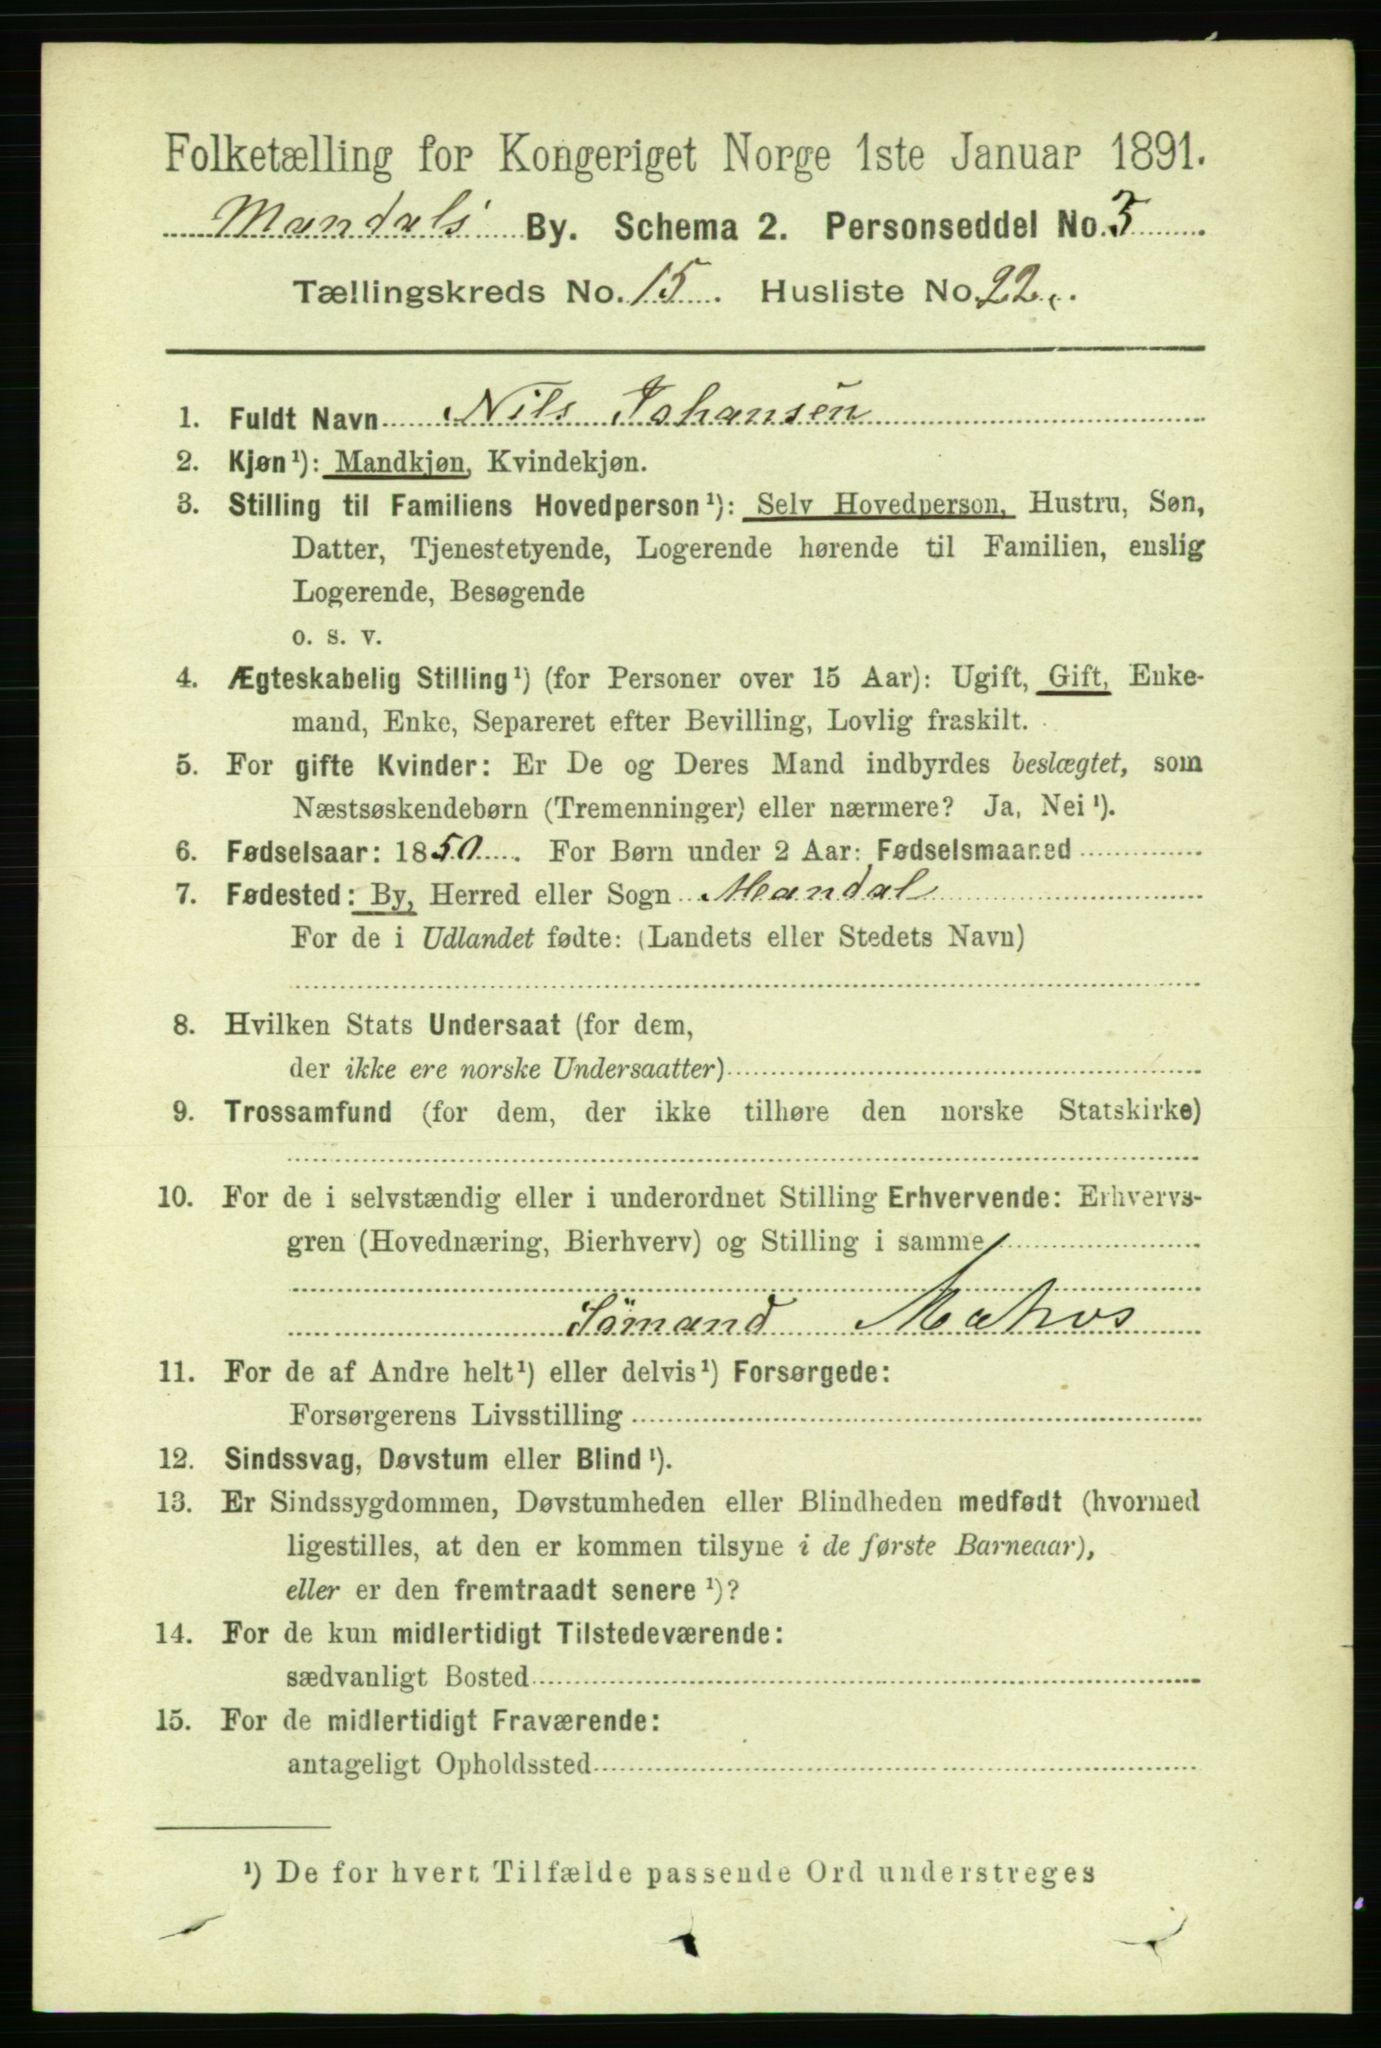 Folketælling for Kongeriget Norge 1ste Januar 1891.
Mandals By. Schema 2. Personseddel No. 3
Tællingskreds No. 15. Husliste No. 22.
1. Fuldt Navn Nils Johansen
2. Kjøn¹): Mandkjøn, Kvindekjøn.
3. Stilling til Familiens Hovedperson¹): Selv Hovedperson, Hustru, Søn,
Datter, Tjenestetyende, Logerende hørende til Familien, enslig
Logerende, Besøgende
o. s. v.
4. Ægteskabelig Stilling¹) (for Personer over 15 Aar): Ugift, Gift, Enke-
mand, Enke, Separeret efter Bevilling, Lovlig fraskilt.
5. For gifte Kvinder: Er De og Deres Mand indbyrdes beslægtet, som
Næstsøskendebørn (Tremenninger) eller nærmere? Ja, Nei¹).
6. Fødselsaar: 1850. For Børn under 2 Aar: Fødselsmaaned
7. Fødested: By, Herred eller Sogn Mandal
For de i Udlandet fødte: (Landets eller Stedets Navn)
8. Hvilken Stats Undersaat (for dem,
der ikke ere norske Undersaatter)
9. Trossamfund (for dem, der ikke tilhøre den norske Statskirke)
10. For de i selvstændig eller i underordnet Stilling Erhvervende: Erhvervs-
gren (Hovednæring, Bierhverv) og Stilling i samme
Sömand Matros
11. For de af Andre helt¹) eller delvis¹) Forsørgede:
Forsørgerens Livsstilling
12. Sindssvag, Døvstum eller Blind¹).
13. Er Sindssygdommen, Døvstumheden eller Blindheden medfødt (hvormed
ligestilles, at den er kommen tilsyne i de første Barneaar),
eller er den fremtraadt senere¹)?
14. For de kun midlertidigt Tilstedeværende:
sædvanligt Bosted
15. For de midlertidigt Fraværende:
antageligt Opholdssted
¹) De for hvert Tilfælde passende Ord understreges